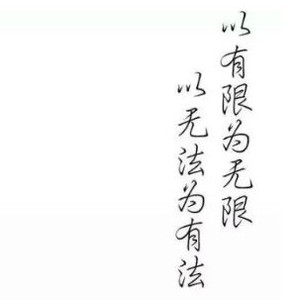 以有限为无限
以无法为有法